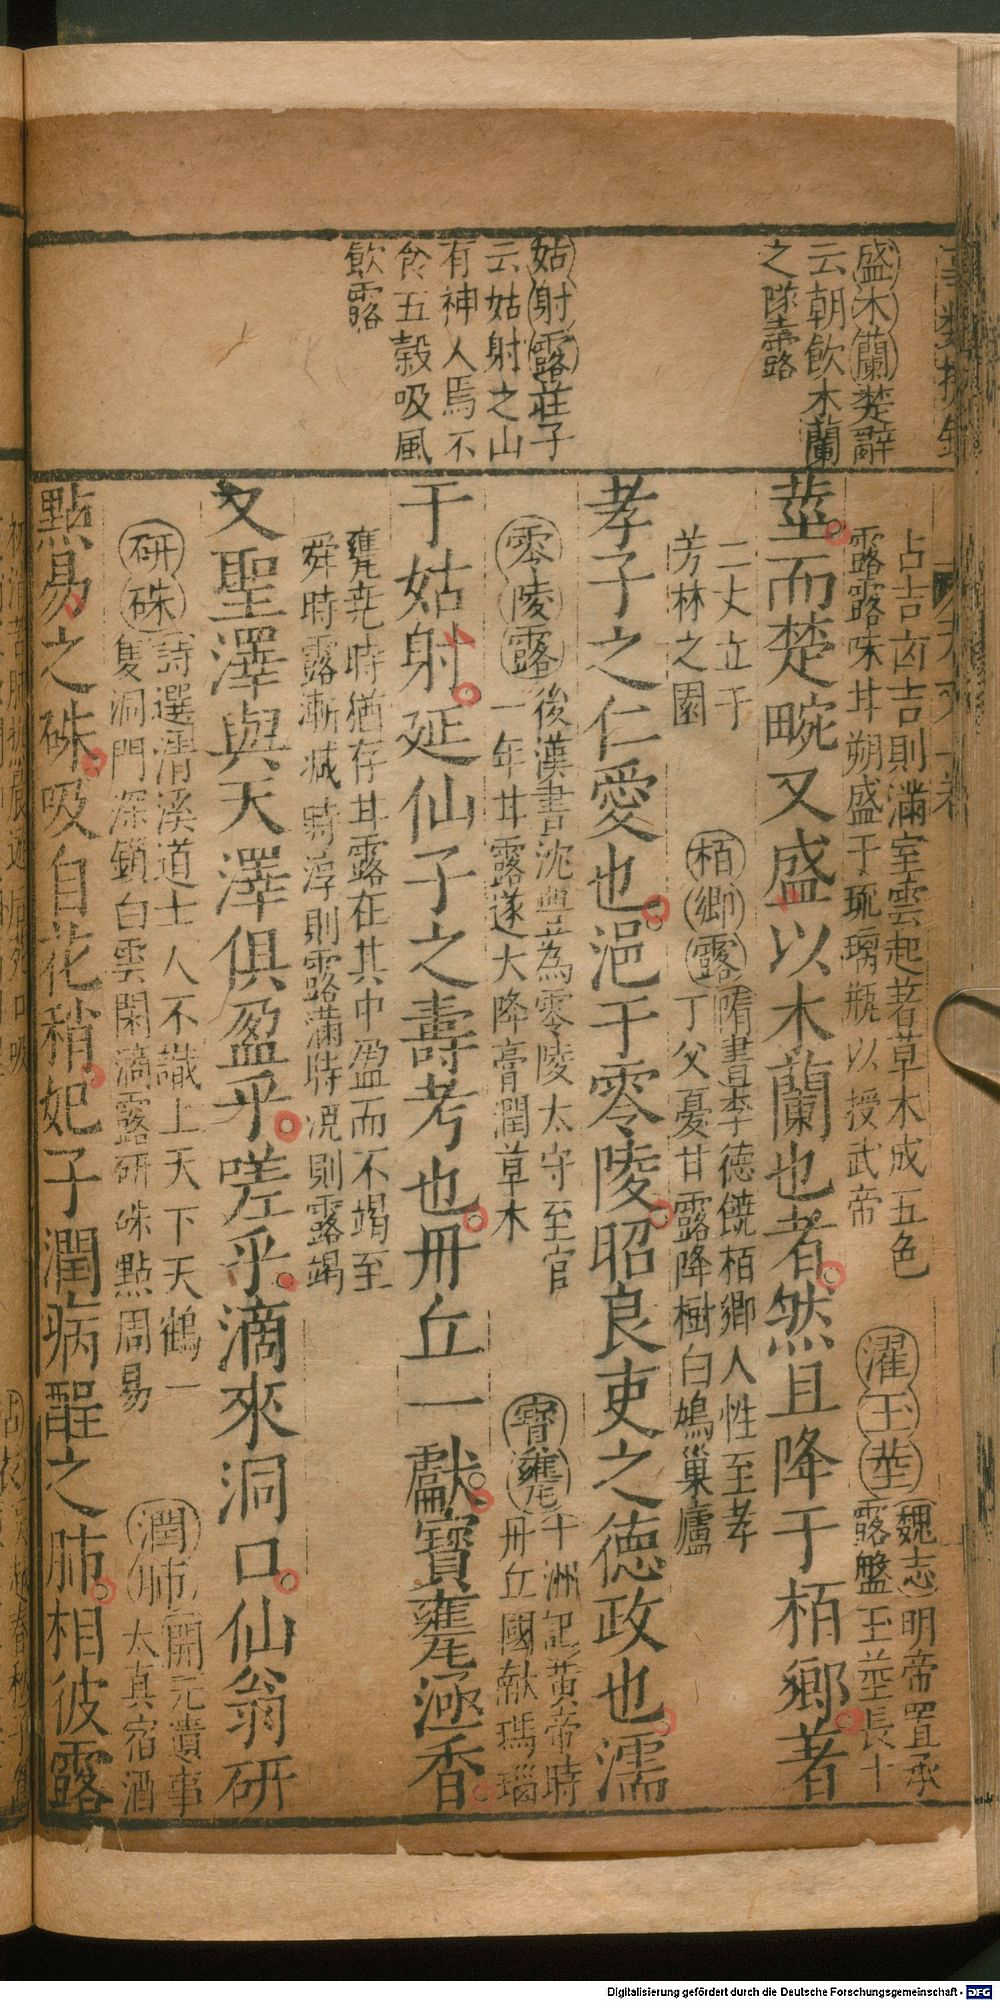 盛木蘭楚辭
云朝飲木蘭
之隊壽露
姑射露莊子
云姑射之山
有神人焉不
食五穀吸風
飲露
占吉凶吉則滿室雲起著草木成五色
露露味甘朔盛于琉璃瓶以授武帝
濯玉莖魏志明帝置承
露盤玉莖長十
莖而楚畹又盛以木蘭也者然且降于栢鄉著
二丈立于
芳林之園
栢鄉露隋書李德饒栢鄉人性至孝
丁父憂甘露降樹白鳩巢廬
孝子之仁愛也浥于零陵昭良吏之德政也濡
零陵露後漢書沈豐為零陵太守至官
一年甘露遂大降膏潤草木
寶甕十洲記黃帝時
丹丘國献瑪瑙
于姑射延仙子之壽考也丹丘一獻寶甕濹香
甕堯時猶存甘露在其中盈而不竭至
舜時露漸减時淳則露滿時澆則露竭
又聖澤與天澤俱盈乎嗟乎滴來洞口仙翁研
研硃詩選清溪道士人不識上天下天鶴一
隻洞門深鎖白雲閑滴露研硃點周易
潤肺開元遺事
太真宿酒
點易之硃吸自花稍妃子潤病酲之肺相彼露
Digitalisierung gefördert durch die Deutsche Forschungsgemeinschaft - DFG